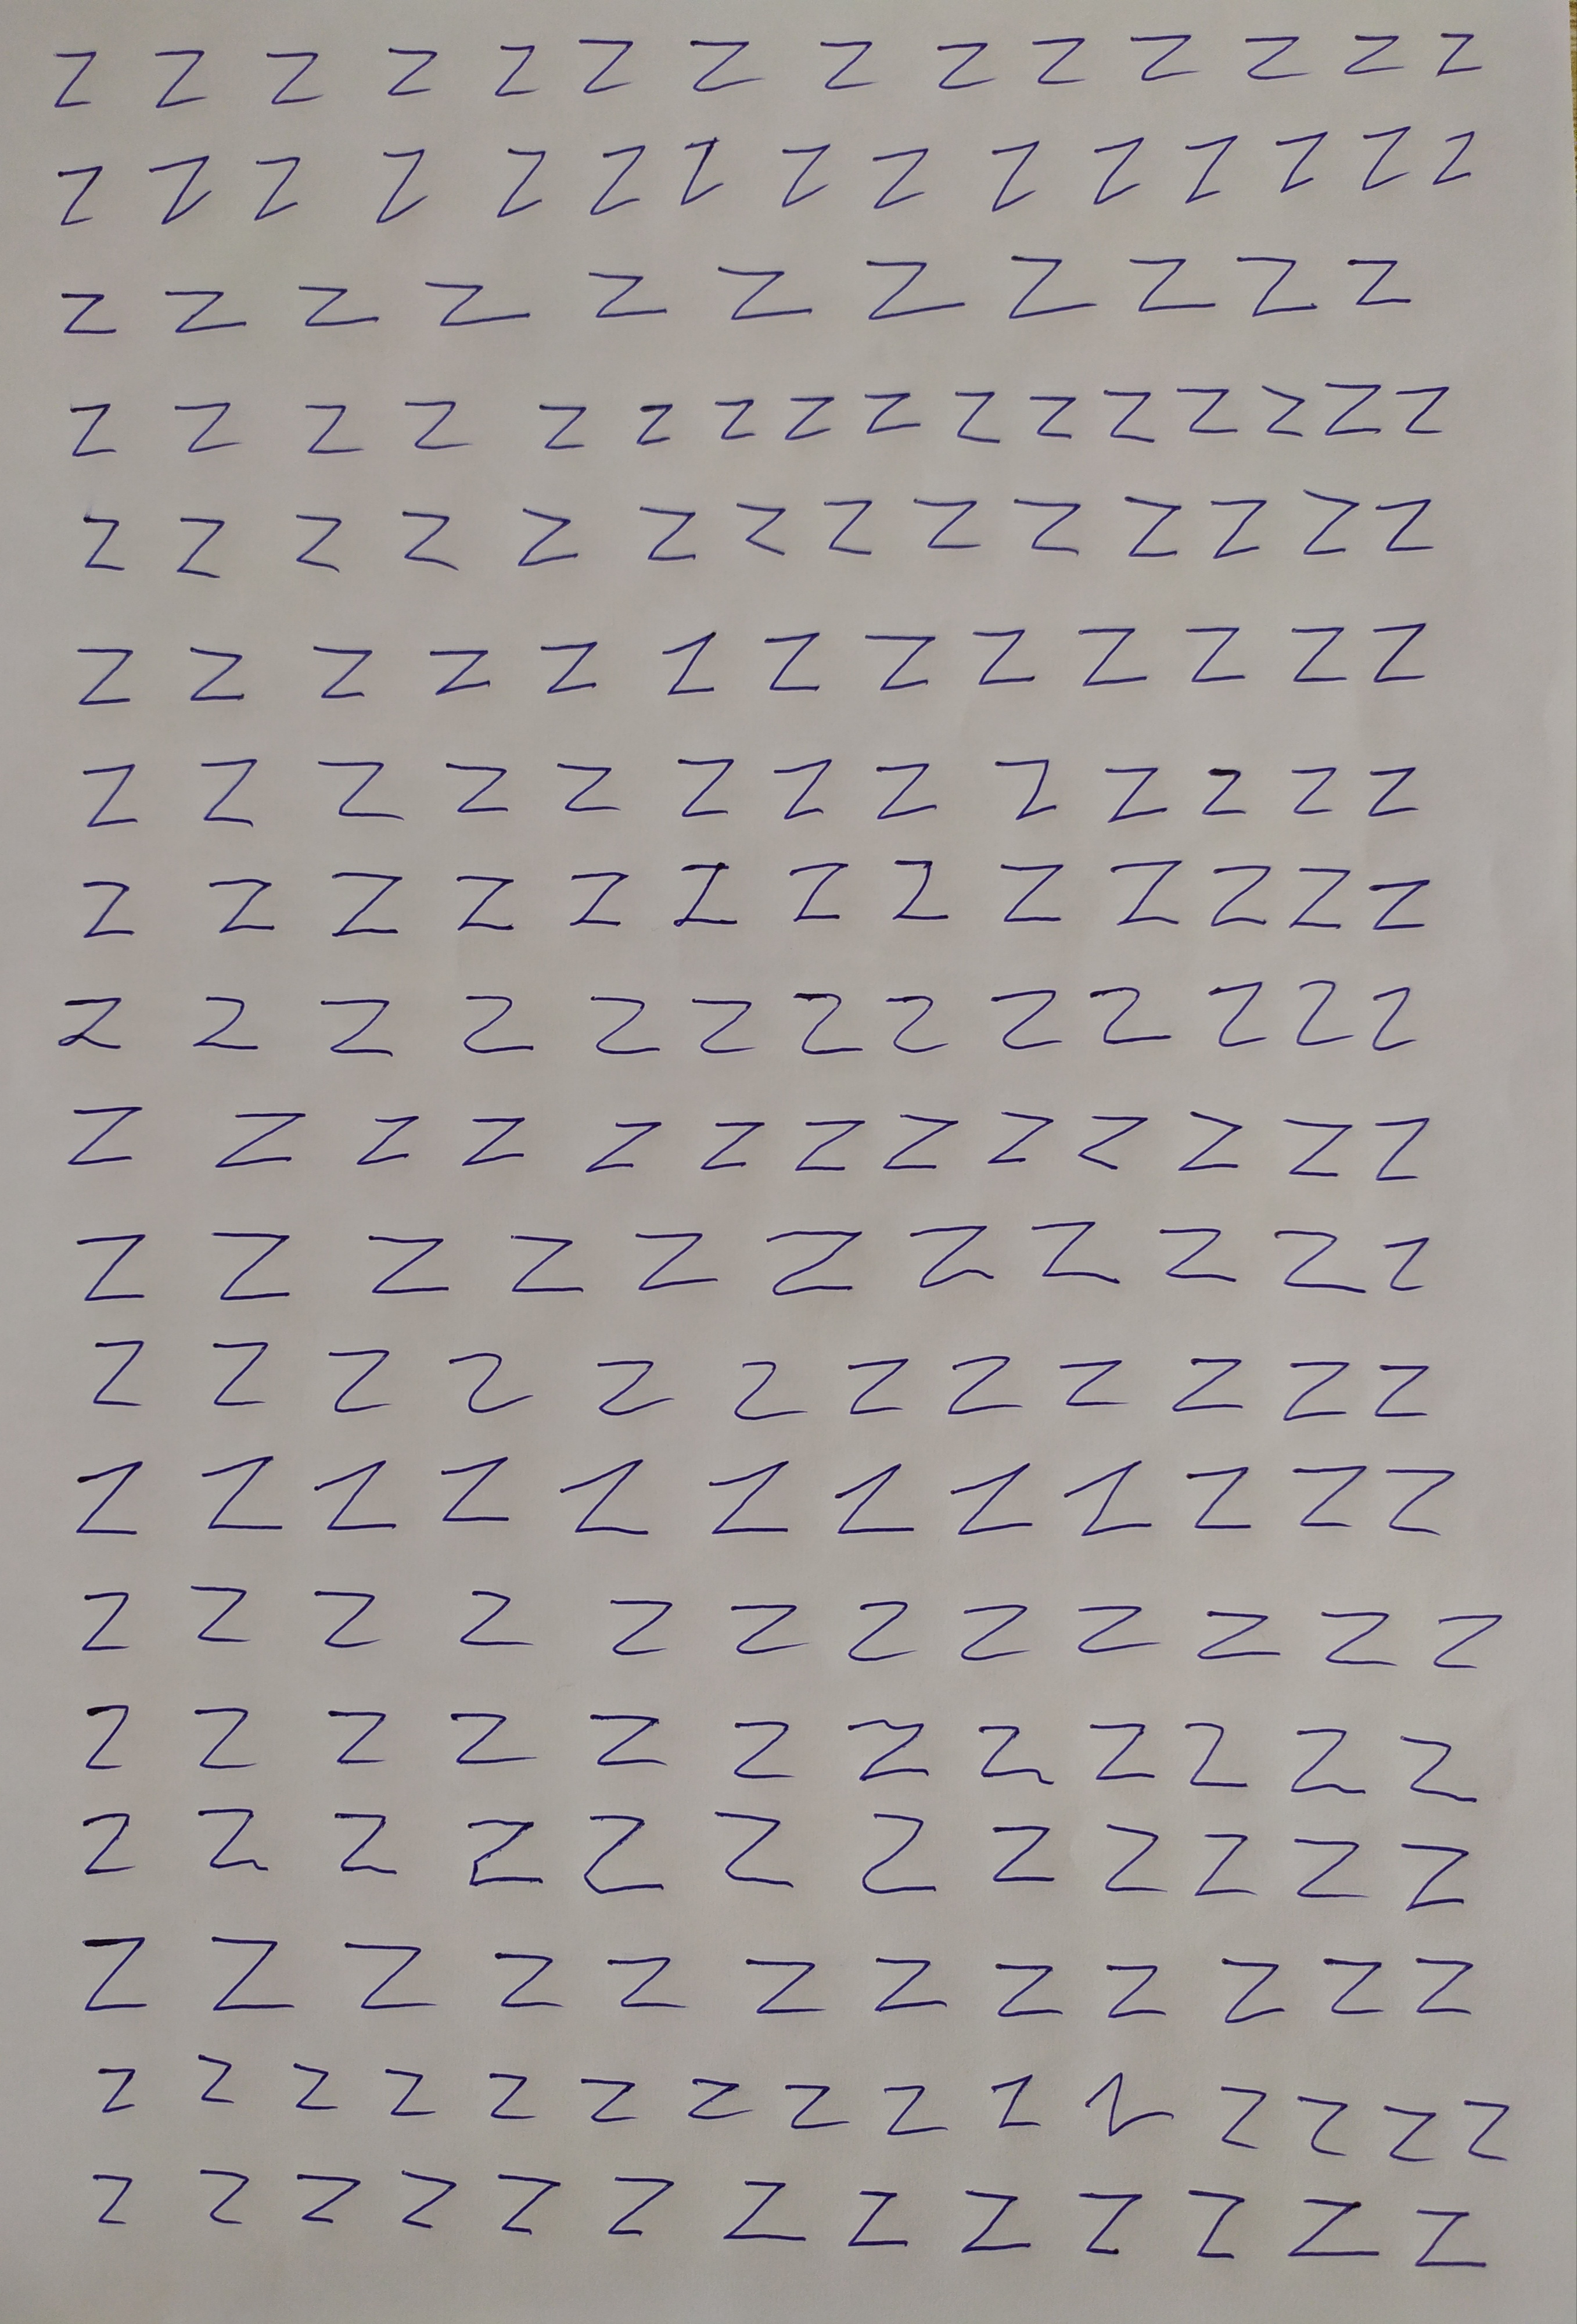 Z Z Z Z Z Z Z Z Z Z Z Z Z Z
Z Z Z Z Z Z Z Z Z Z Z Z Z Z Z
Z Z Z Z Z Z Z Z Z Z Z
Z Z Z Z Z Z Z Z Z Z Z Z Z Z Z Z
Z Z Z Z Z Z Z Z Z Z Z Z Z Z
Z Z Z Z Z Z Z Z Z Z Z Z Z
Z Z Z Z Z Z Z Z Z Z Z Z Z
Z Z Z Z Z Z Z Z Z Z Z Z Z
Z Z Z Z Z Z Z Z Z Z Z Z Z
Z Z Z Z Z Z Z Z Z Z Z Z Z
Z Z Z Z Z Z Z Z Z Z Z
Z Z Z Z Z Z Z Z Z Z Z Z
Z Z Z Z Z Z Z Z Z Z Z Z
Z Z Z Z Z Z Z Z Z Z Z Z
Z Z Z Z Z Z Z Z Z Z Z Z
Z Z Z Z Z Z Z Z Z Z Z Z
Z Z Z Z Z Z Z Z Z Z Z Z
Z Z Z Z Z Z Z Z Z Z Z Z Z Z Z
Z Z Z Z Z Z Z Z Z Z Z Z Z